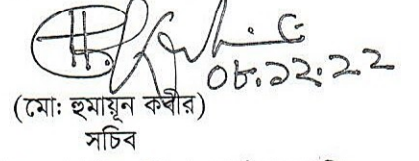 ০৮.১২.২২
(মো: হুমায়ূন কবীর)
সচিব